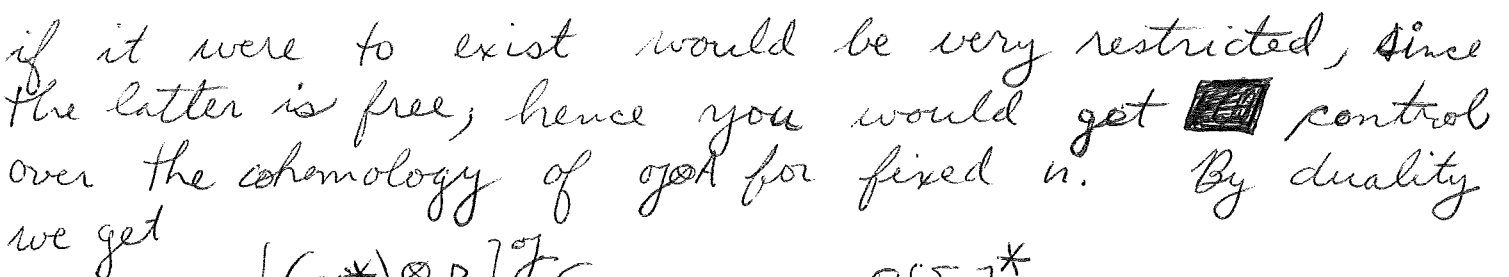 if it were to exist would be very restricted, since
the latter is free; hence you would get control
over the cohomology of 𝔤⊗A for fixed n. By duality
we get